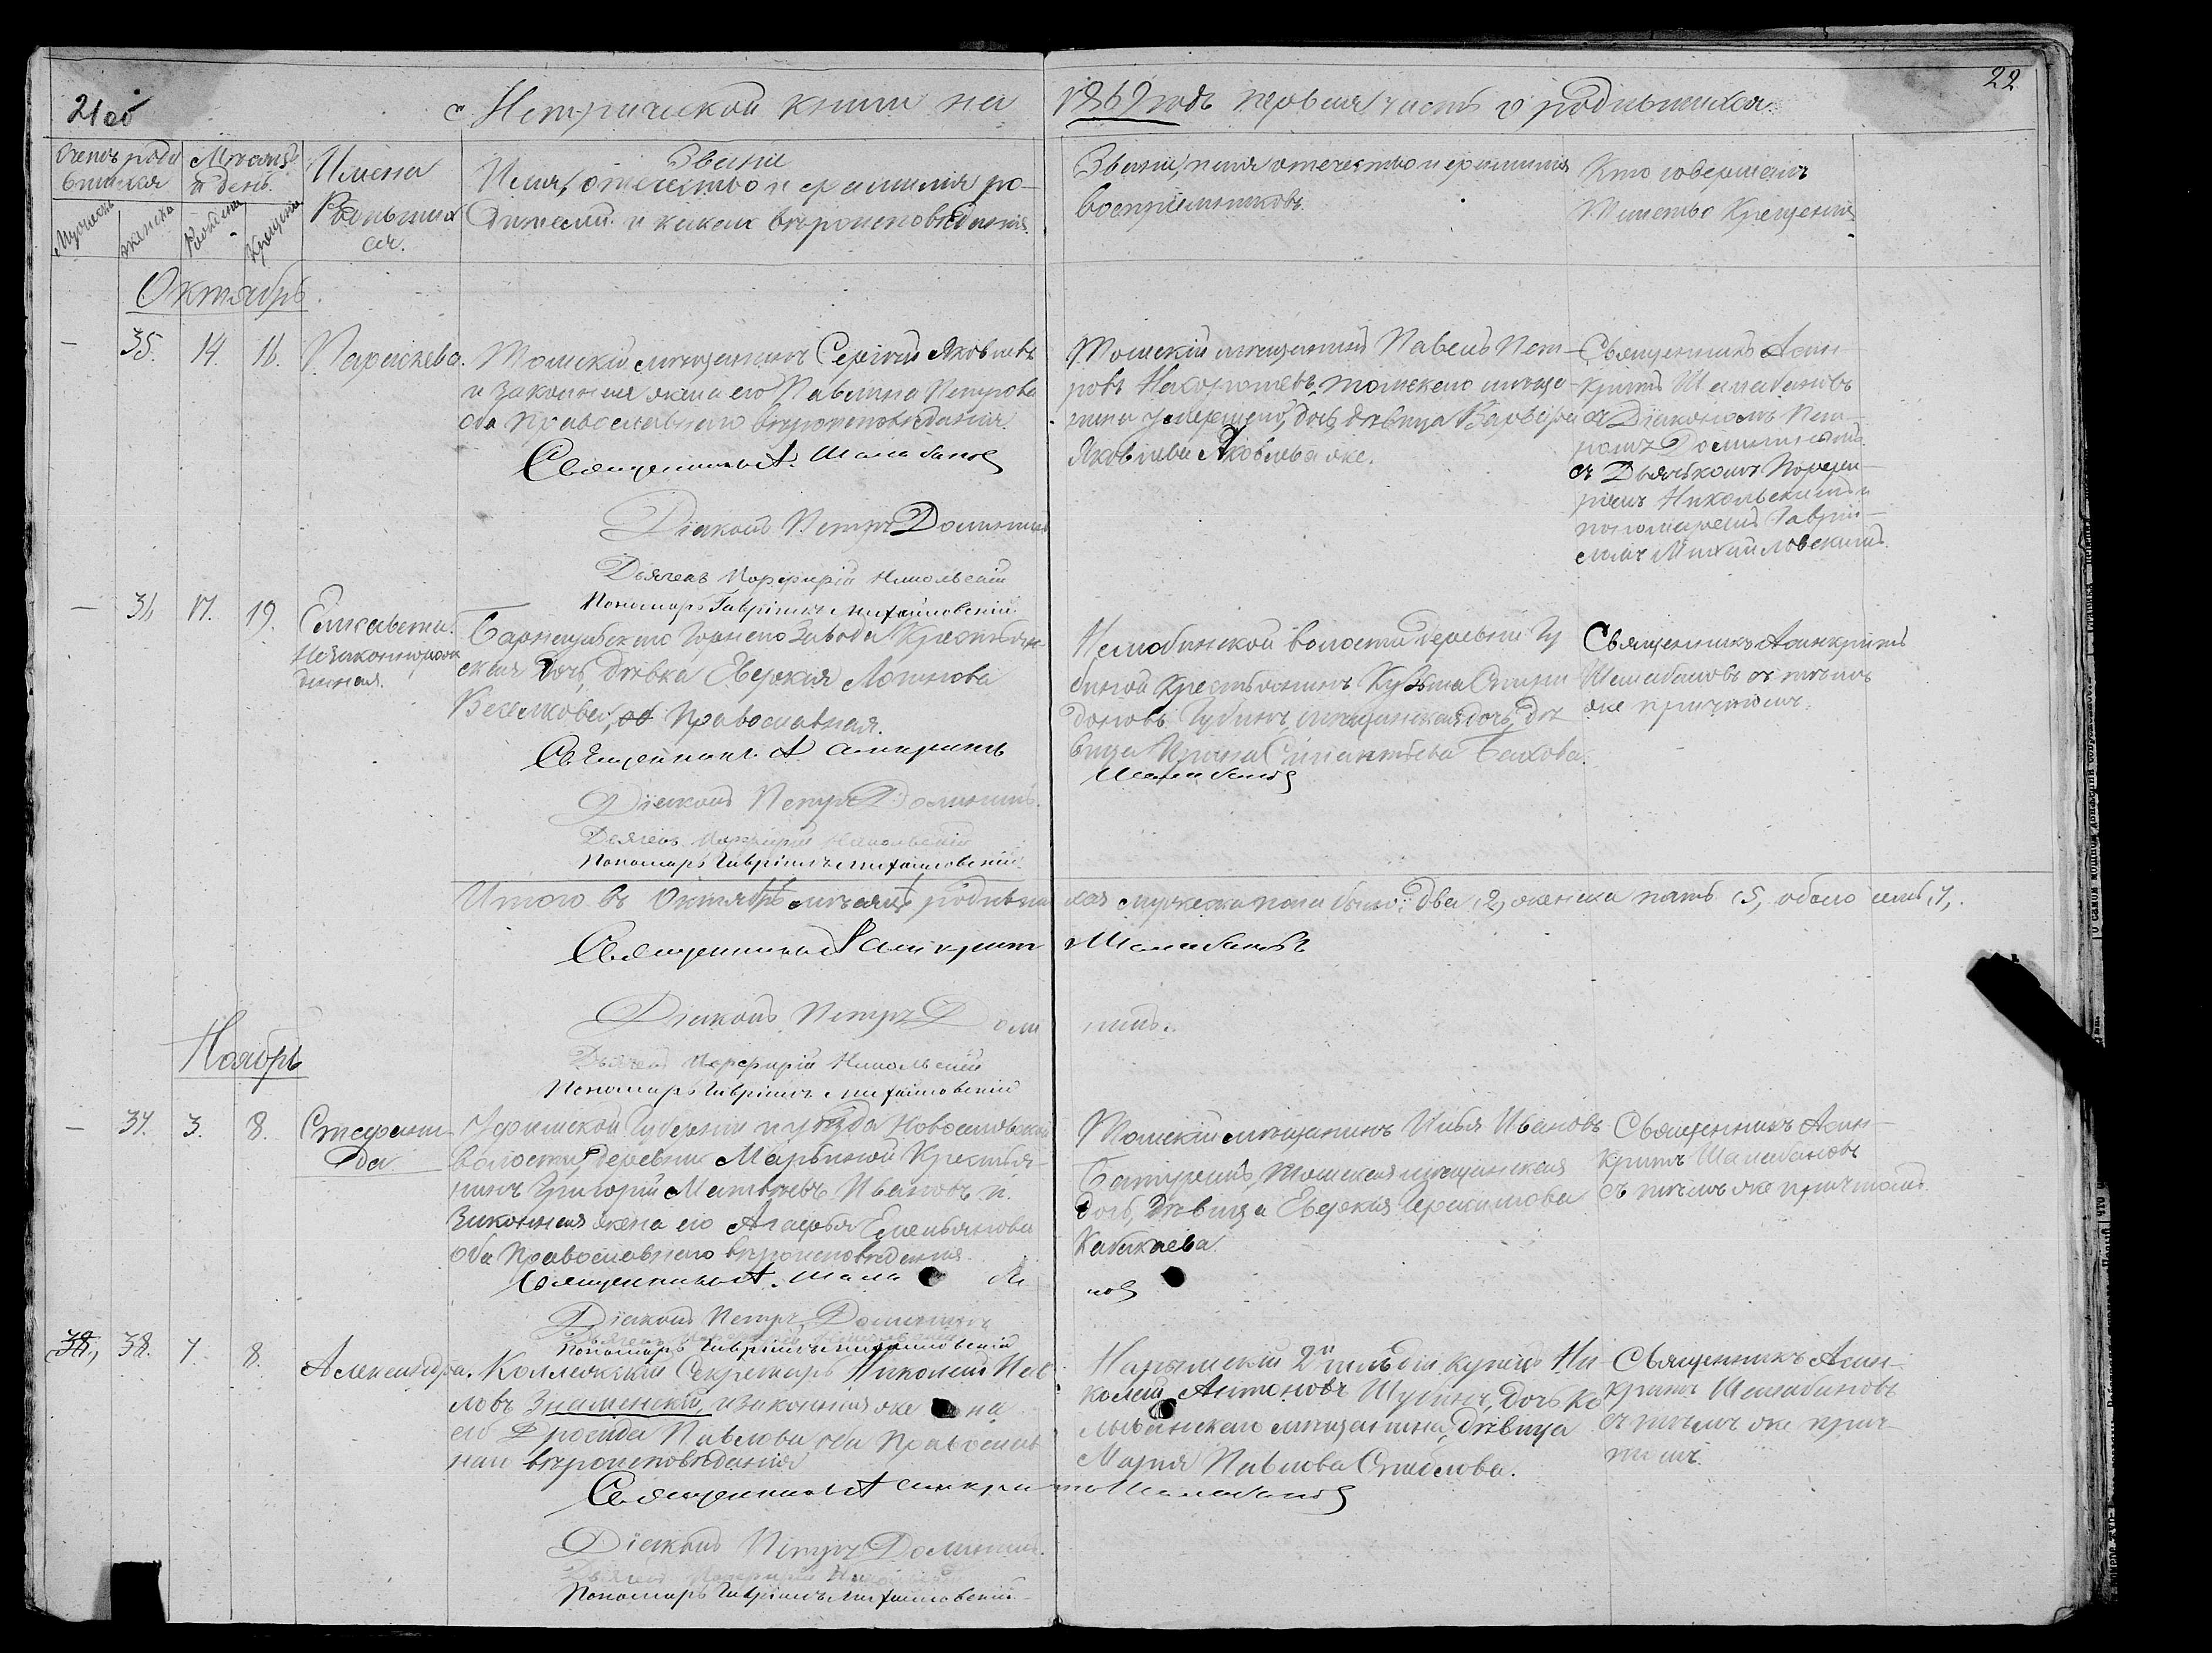 21 об
Метрической книги на 1869 годъ первая часть о родившихся.
22.
Счетъ роди
вшихся
Мужеска
женска
Месяцъ
и день.
Рожденія
Крещенія
Имена
Родивших
ся.
Званіе
Имя, отечество и фамилія ро-
дителей и какого вѣроисповѣданія.
Званіе, имя отечество и фамилія
воспріемниковъ.
Кто совершалъ
Таинство Крещенія
Октябрь.
— 35. 14. 16. Параскева.
Томскій мѣщанинъ Сергій Яковлевъ
и законная жена его Павлина Петрова
оба православнаго вѣроисповѣданія.
Священникъ А. Шалабановъ
Діаконъ Петръ Домининъ
Дьячекъ Порфирій Никольскій
Пономарь Гавріилъ Михайловскій.
Томскій мѣщанинъ Павелъ Пет-
ровъ томскаго мѣща-
нина умершаго, дочь, дѣвица Варвара
Яковлева Яковлева же.
Священникъ Асин-
критъ Шалабановъ
съ Діакономъ Пет-
ромъ Доминин
съ Дьячькомъ Порфи-
ріемъ Никольскимъ и
пономаремъ Гаврі-
иломъ Михайловскимъ.
— 36 17. 19. Елисавета.
Незаконнорож
денная.
Барнаульскаго Горнаго Завода Крестьян-
ская дочь, дѣвка Евдокія Логинова
православная.
Священникъ Асинкритъ
Діаконъ Петръ Домининъ.
Дьячекъ Порфирій Никольскій
Пономарь Гавріилъ Михайловскій.
Нелюбинской волости деревни Гу
биной Крестьянинъ Кузьма Спири
доновъ Губинъ, мѣщанская дочь, дѣ
вица Ирина Силантьева
Шалабановъ
Священникъ Асинкритъ
Шалабановъ съ тѣмъ
же причтомъ.
Итого въ Октябрѣ мѣсяцѣ родившихся мужеска пола было: два, 2, женска пять, 5, обоего семь, 7,.
Священникъ Асинкритъ Шалабановъ
Діаконъ Петръ Домининъ.
Дьячекъ Порфирій Никольскій
Пономарь Гавріилъ Михайловскій
Ноябрь
— 37. 3. 8. Стефани-
да.
Уфимской Губерніи и уѣзда
волости, деревни Марьиной Крестья-
нинъ Григорій Матвѣевъ Ивановъ и
законная жена его Агафья Емельянова
оба православнаго вѣроисповѣданія.
Священникъ А. Шалабановъ
Діаконъ Петръ Домининъ
Дьячекъ Порфирій Никольскій
Пономарь Гавріилъ Михайловскій
Томскій мѣщанинъ Илья Ивановъ
Батуринъ, Томская мѣщанская
дочь, дѣвица Евдокія Герасимова
Священникъ Асин-
критъ Шалабановъ
съ тѣмъ же причтомъ.
38, 38. 7. 8. Александра.
Коллежскій Секретарь Николай Пав
ловъ Знаменскій, и законная же жена
его Фроенда Павлова оба православ
наго вѣроисповѣданія
Священникъ Асинкритъ Шалабановъ
Діаконъ Петръ Домининъ.
Дьячекъ Порфирій
Пономарь Гавріилъ Михайловскій
Нарымскій 2й гильдіи купецъ Ни
колай Антоновъ Шубинъ, дочь Ко
лыванскаго мѣщанина, дѣвица
Марія Павлова
Священникъ Асин-
критъ Шалабановъ
съ тѣмъ же прич-
томъ.